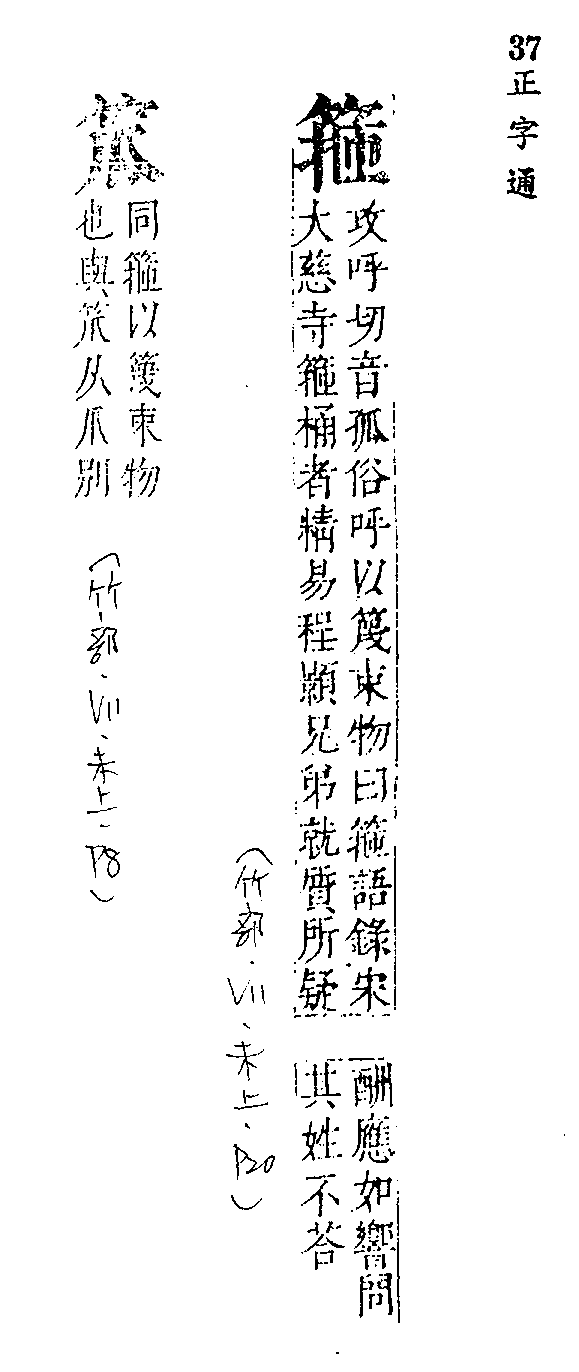 37正字通
箍
攻呼切音孤俗呼以篾束物曰箍語錄宋
大慈寺箍桶者精易程顥兄弟就質所疑
酬應如響問
其姓不荅
(竹部.VII、未上.P20)
笟
同箍以篾束物
也與笊从爪別
(竹部.VII、未上.P8)